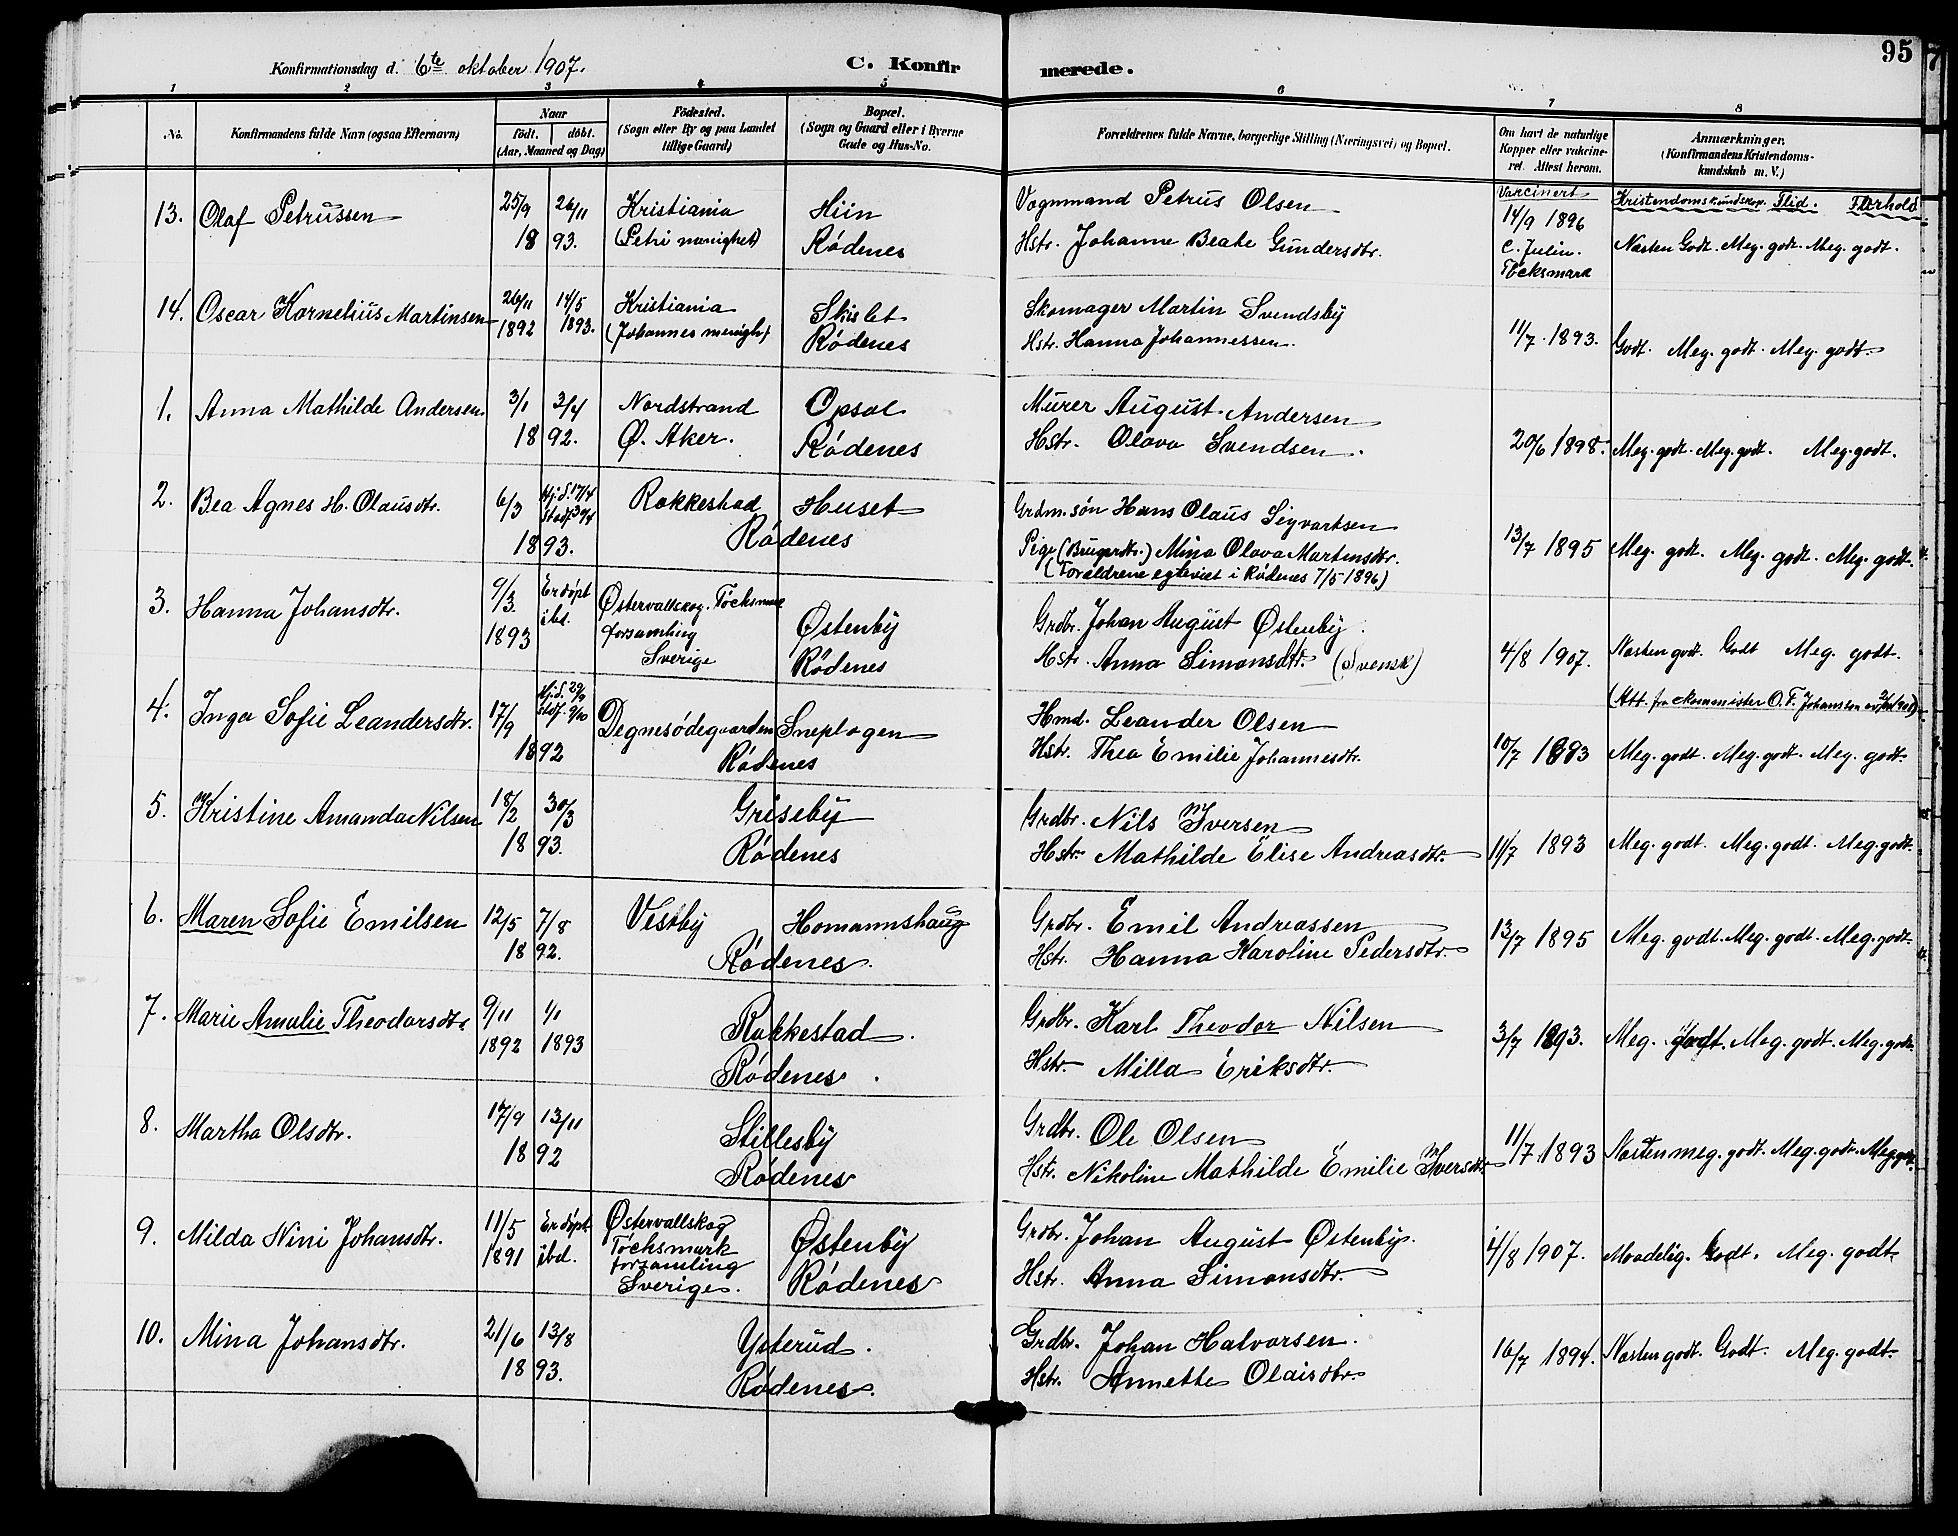 Konfirmationsdag d. 6te oktober 1907.
C. Konfirmerede.
95
1 2 3 4 5 6 7 8
No.
Konfirmandens fulde Navn (ogsaa Efternavn)
Naar
födt. döbt.
(Aar, Maaned og Dag)
Födested.
(Sogn eller By og paa Landet
tillige Gaard)
Bopæl.
(Sogn og Gaard eller i Byerne
Gade og Hus-No.
Forældrenes fulde Navne, borgerlige Stilling (Næringsvei) og Bopæl.
Om havt de naturlige
Kopper eller vakcine-
ret. Attest herom.
Anmærkninger.
(Konfirmandens Kristendoms-
kundskab m. V.)
Vaccinert Kristendomskundskap. Flid. Forhold
13. Olaf Petrussen 25/9 26/11 Kristiania Hiin Vognmand Petrus Olsen 14/9 1896
1893. (Petri menighet) Rödenes Hstr. Johanne Beate Gundersdtr. C. Julin. Næsten Godt. Meg. godt. Meg. godt.
Töcksmark
14. Oscar Kornelius Martinsen 26/11 14/5 Kristiania Skislet Skomager Martin Svendsby
1892 1893. (Johannes menigh.) Rödenes Hstr. Hanna Johannessen. 11/7. 1893. Godt. Meg. godt. Meg. godt.
1. Anna Mathilde Andersen. 3/1 3/4 Nordstrand Opsal Murer August Andersen
1892. Ø. Aker. Rödenes Hstr. Olava Svendsen. 20/6 1898. Meg. godt. Meg. godt. Meg. godt.
2. Bea Agnes H. Olausdtr. 6/3 Hj.d. 17/4 Rakkestad Huset Grdm. søn Hans Olaus Sigvartsen
Stadf. 30/4
1893. Rödenes Pige (Brugerdtr.) Mina Olava Martinsdtr. 13/7 1895 Meg. godt. Meg. godt. Meg. godt.
(Forældrene egteviet i Rödenes 7/5 1896)
3. Hanna Johansdtr. 9/3. Er döpt Østervallskog. Töcksmark Østenby Grdbr. Johan August Østenby.
1893 ibd. forsamling
Sverige Rödenes Hstr. Anna Simonsdtr. (Svensk) 4/8 1907. Næsten godt. Godt Meg. godt.
4. Inga Sofie Leandersdtr. 17/9 Hj.d. 29/9 Degnesödegaarden Sneplogen Hmd. Leander Olsen
Stadf. 9/10
1892 Rödenes Hstr. Thea Emilie Johannesdtr. 10/7 1893 Meg. godt. Meg. godt. Meg. godt.
5. Kristine Amanda Nilsen 18/2 30/3 Griseby Grdbr. Nils Iversen
1893. Rödenes Hstr. Mathilde Elise Andreasdtr. 11/7 1893 Meg. godt. Meg. godt. Meg. godt.
6. Maren Sofie Emilsen 12/5 7/8 Visiby Homannshaug Grdbr. Emil Andreassen
1892. Rödenes. Hstr. Hanna Karoline Pedersdtr. 13/7 1895 Meg. godt. Meg. godt. Meg. godt.
7. Marie Amalie Theodorsdtr. 9/11 1/1 Rakkestad. Grdbr. Karl Theodor Nilsen
1892 1893 Rödenes. Hstr. Milla Eriksdtr. 3/7 1893. Meg. godt. Meg. godt. Meg. godt.
8. Martha Olsdtr. 17/9 13/11 Stillesby Grdbr. Ole Olsen
1892 Rödenes Hstr. Nikoline Mathilde Emilie Iversdtr. 11/7 1893 Næsten meg. godt. Meg. godt. Meg. godt.
9. Milda Nini Johansdtr. 11/5 Er döpt Østervallskog Østenby Grdbr. Johan August Østenby.
1891 ibd. Töcksmark
forsamling
Sverige. Rödenes Hstr. Anna Simonsdtr. 4/8 1907. Maadelig. Godt. Meg. godt.
10. Mina Johansdtr. 21/6 13/8 Ysterud. Grdbr. Johan Halvorsen.
1893. Rödenes. Hstr. Annette Olaisdtr. 16/7 1894. Næsten godt. Godt. Meg. godt.